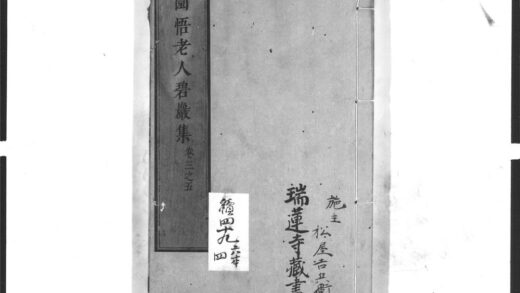 圜悟老人碧巖集 卷三之五
施主 松屋吉兵衛
瑞蓮寺藏書
續四十九
四